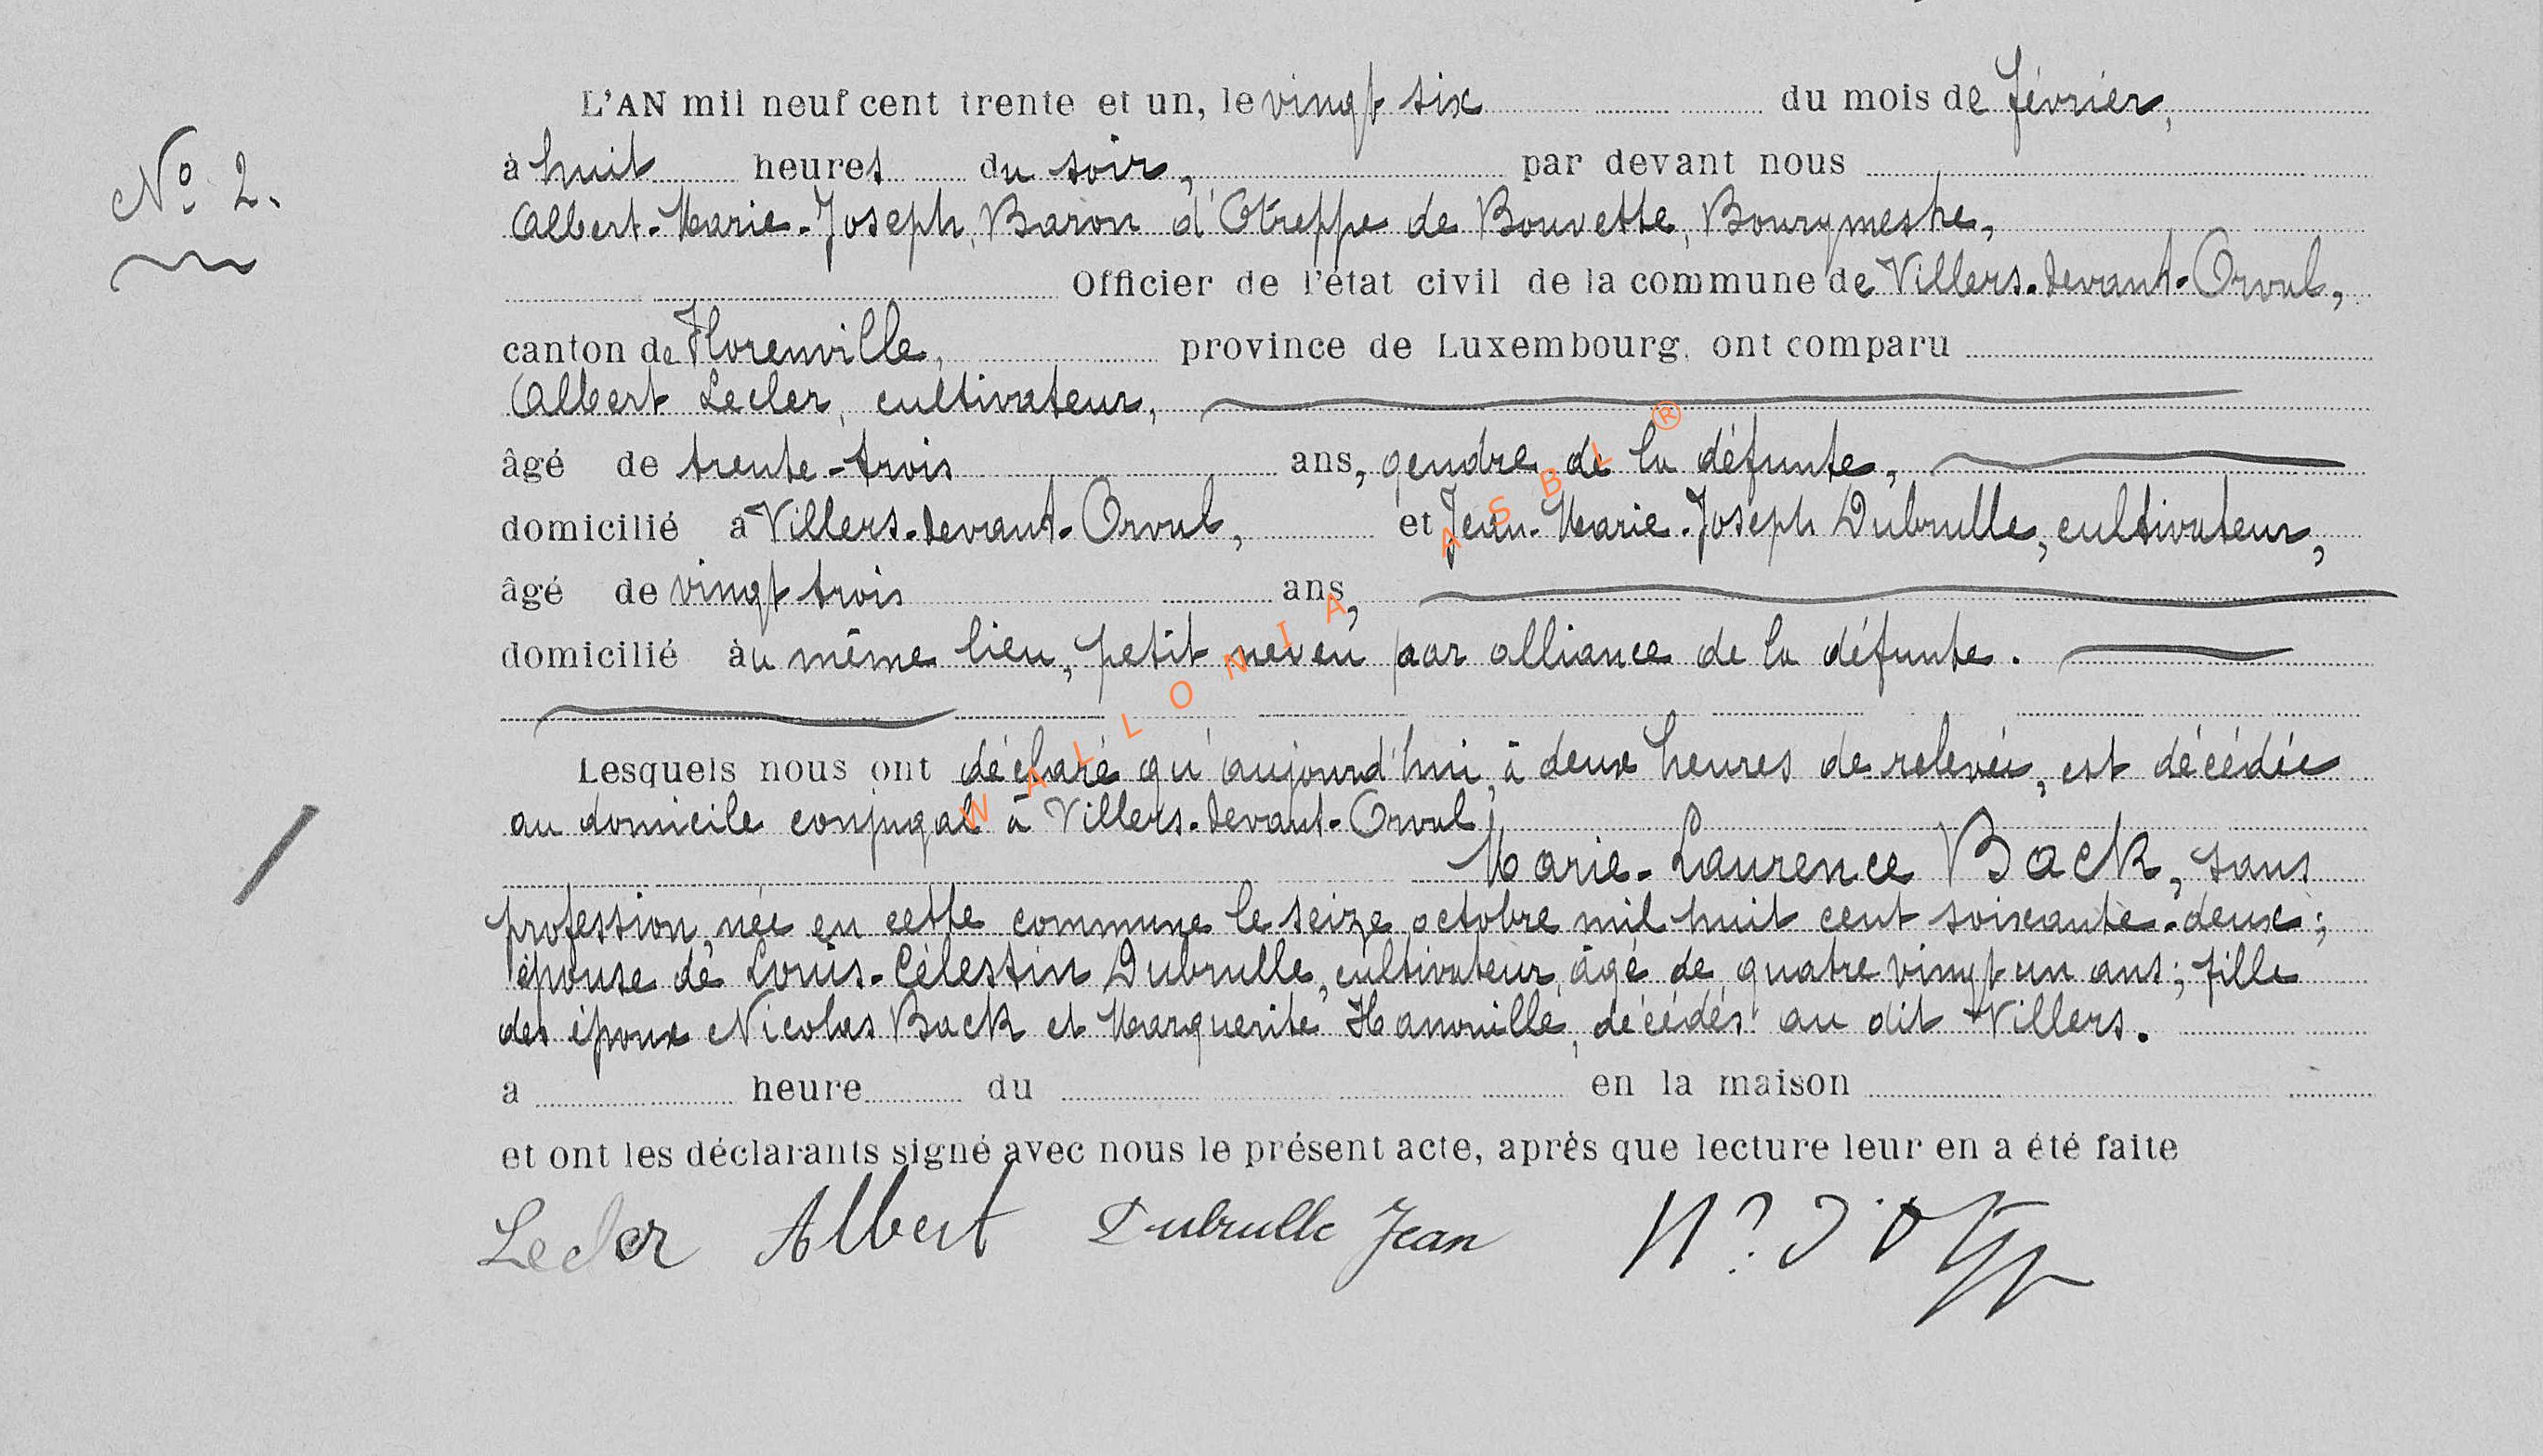 L'AN mil neuf cent trente et un, le vingt six du mois de février,
N° 2.
à huit heures du soir, par devant nous
Albert-Marie-Joseph, Baron d'Otreppe de Bouvette, Bourgmestre,
Officier de l'état civil de la commune de Villers-devant-Orval,
canton de Florenville, province de Luxembourg, ont comparu
Albert Lecler, cultivateur,
âgé de trente-trois ans, gendre de la défunte,
domicilié à Villers-devant-Orval, et Jean-Marie-Joseph Dubrulle, cultivateur,
âgé de vingt trois ans,
domicilié au même lieu, petit neveu par alliance de la défunte.
Lesquels nous ont déclaré qu'aujourd'hui, à deux heures de relevée, est décédée
au domicile conjugal à Villers-devant-Orval,
Marie-Laurence Back, sans
profession, née en cette commune le seize octobre mil huit cent soixante-deux;
épouse de Louis-Célestin Dubrulle, cultivateur, âgé de quatre vingt un ans; fille
des époux Nicolas Back et Marguerite Hanouille, décédés au dit Villers.
a heure du en la maison
et ont les déclarants signé avec nous le présent acte, après que lecture leur en a été faite
Lecler Albert Dubrulle Jean
WALLONIA ASBL ®